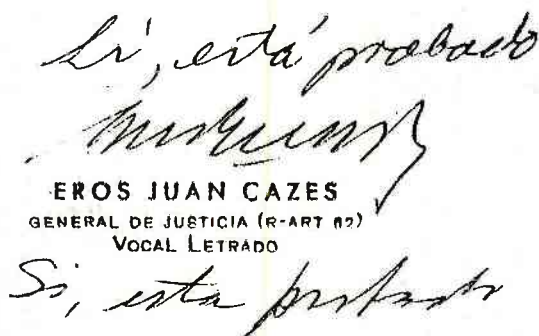 Sí, está probado
EROS JUAN CAZES
GENERAL DE JUSTICIA (R-ART 62)
VOCAL LETRADO
Si, esta probado